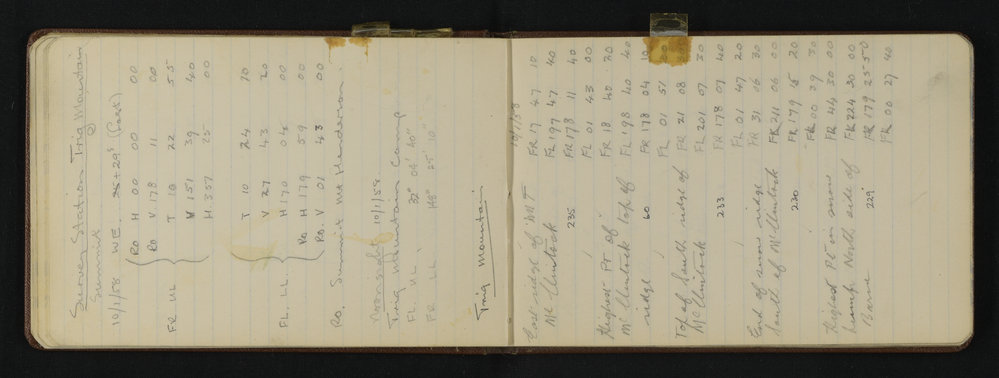 Survey Station Trig Mountain
Summit
10/1/58 W.E. + 29s
Ro H 00 00 00
Ro V 178 11 00
FR UL T 10 22 55
V 151 39 40
H 357 25 00
T 10 24
V 27 43 20
FL. LL. H 170 04 00
Ro H 179 59 00
Ro. V 01 43 00
RO. Summit Mt Henderson
Noonsday 10/1/58.
Trig Mountain Camp
FL. UL 32° 04' 40"
FR LL 148° 25' 10"
Trig Mountain
10/1/58
East ridge of Mt FR 17 47 10
Mc Clintock FL 197 47 40
235 FR 178 11 40
FL 01 43 00
Highest Pt of FR 18 40 20
Mc Clintock top of FL 198 40 40
ridge 60 FR 178 04 10
FL 01 51 00
Top of South ridge of FR 21 08 30
McClintock FL 201 07 30
233 FR 178 07 40
FL 01 47 20
End of snow ridge FR 31 06 30
South of McClintock FR 211 06 00
230 FR 179 15 20
FR 00 39 30
Highest Pt on snow FR 44 30 00
hump North side of FR 224 30 00
Barne 229 FR 179 25 50
FR 00 27 40